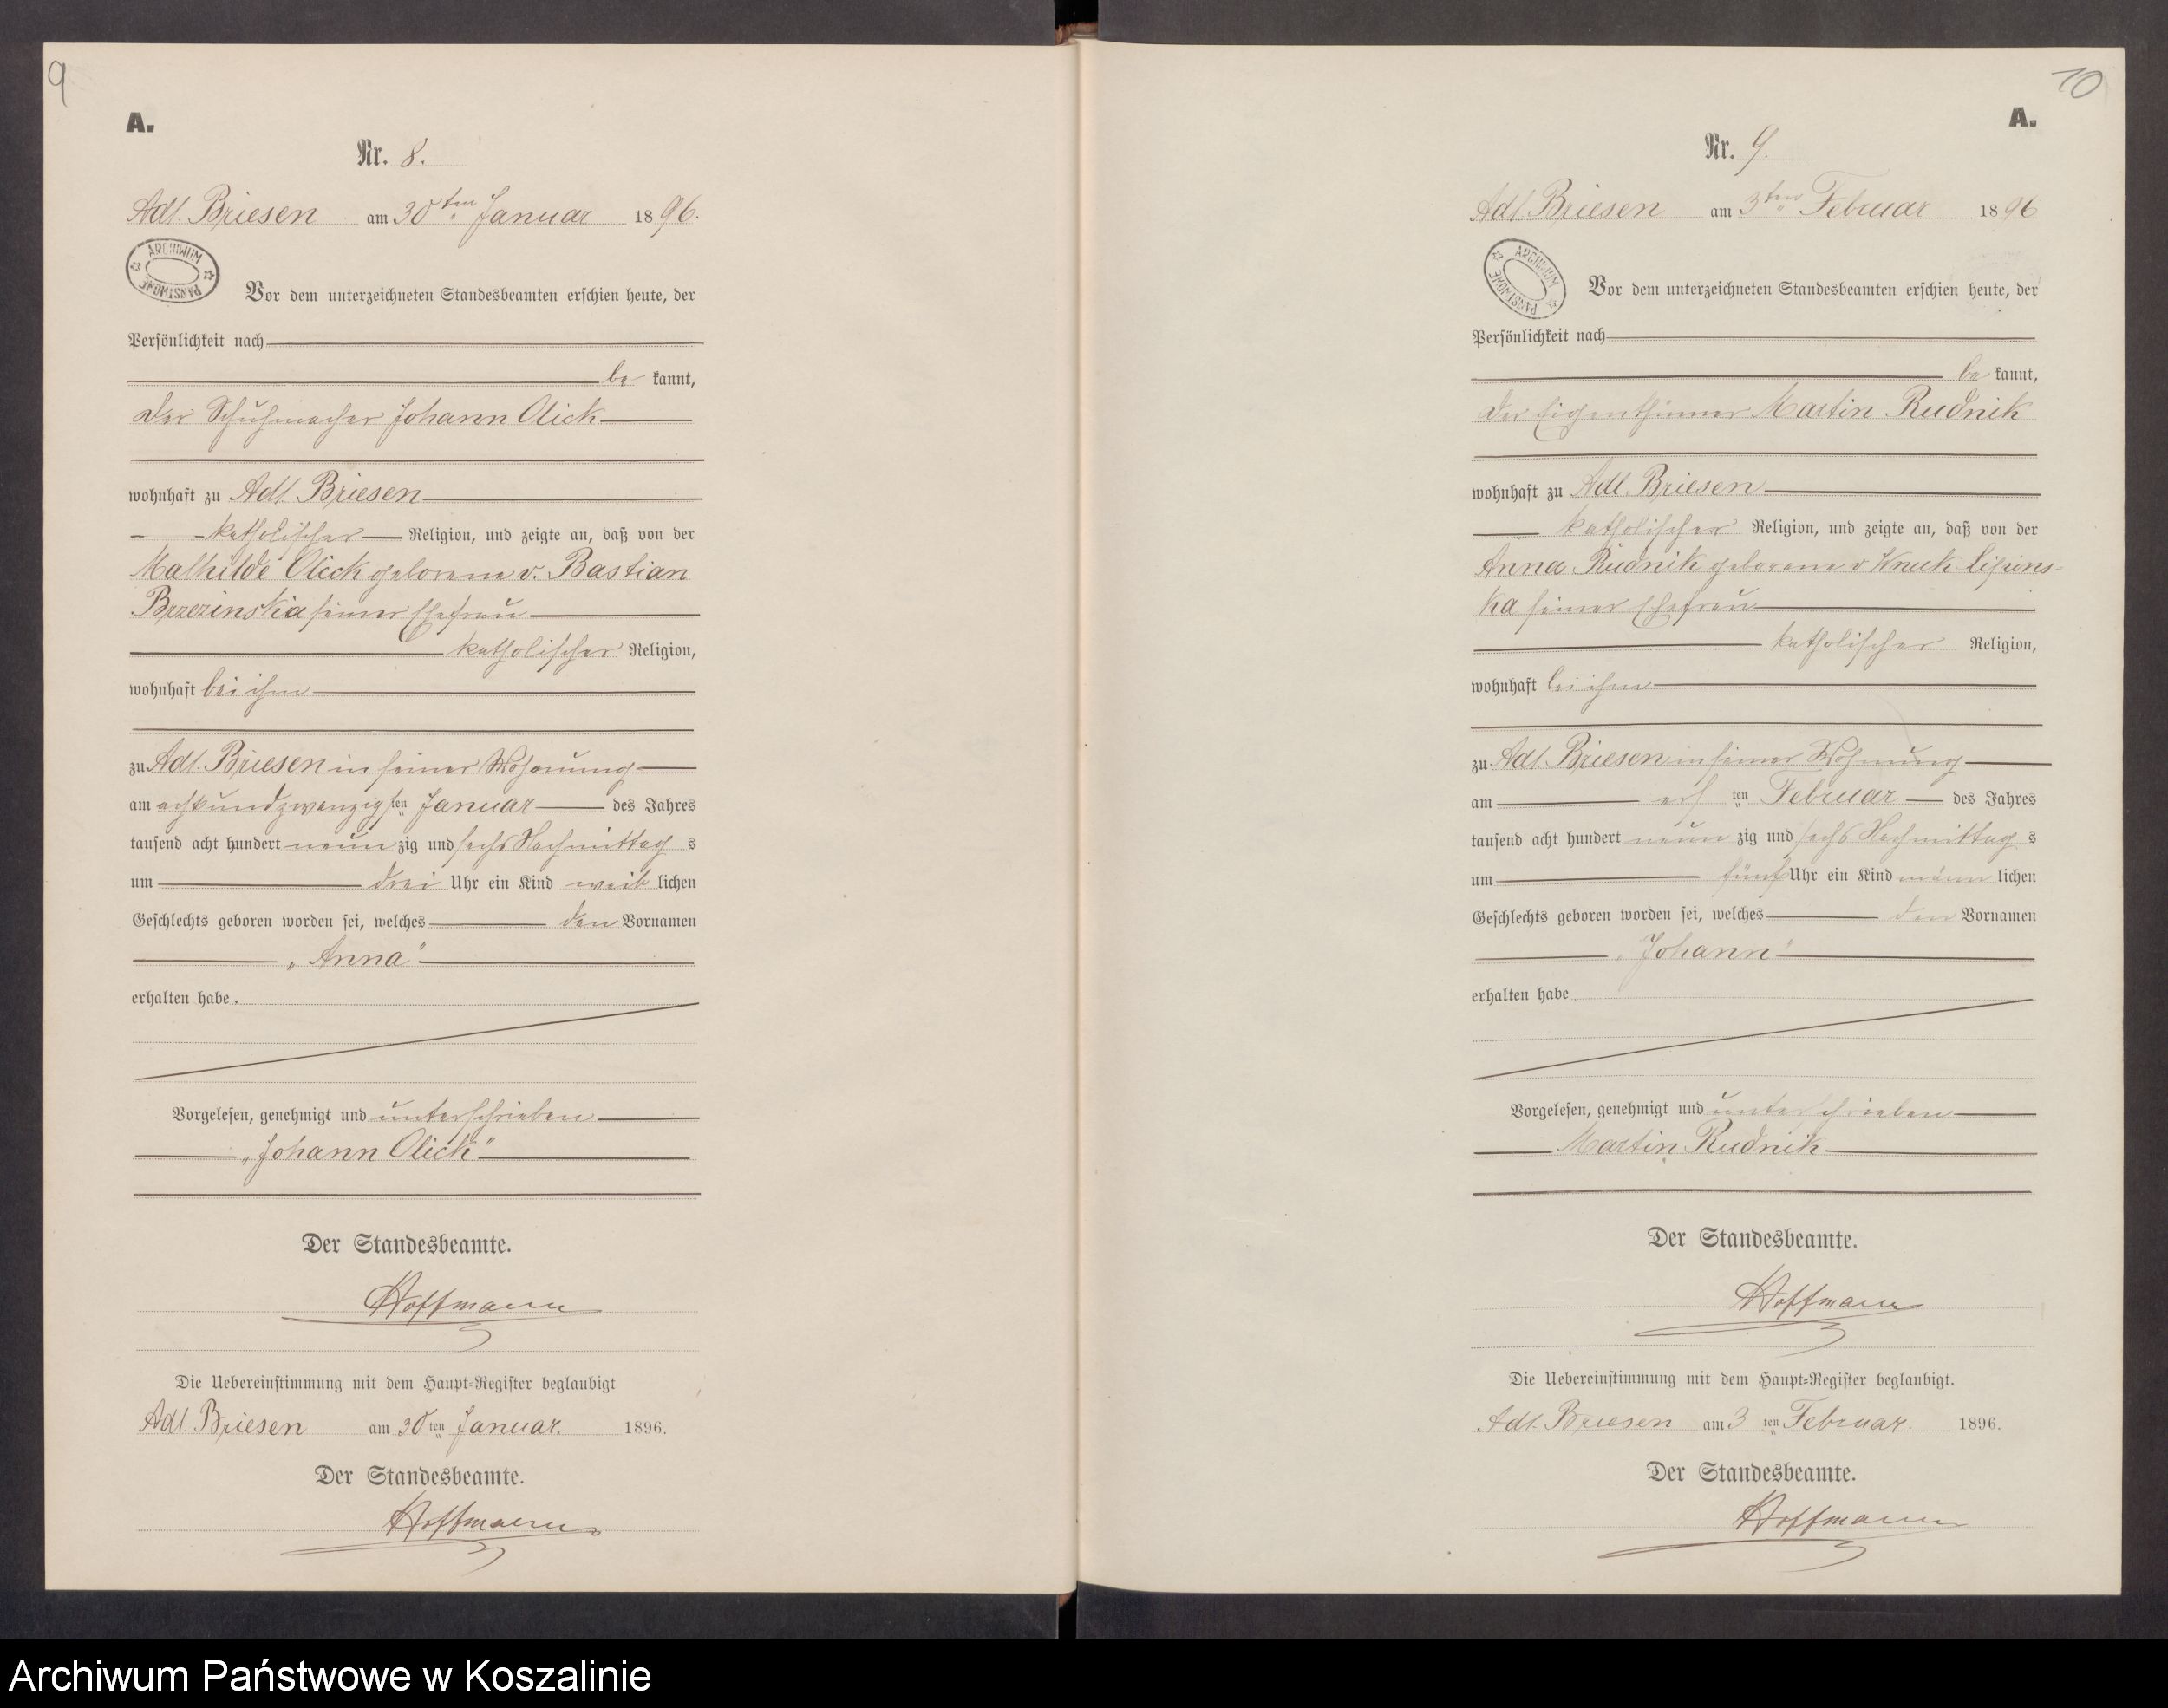 9
A.
Nr. 8.
Adl. Briesen am 30ten Januar 1896.
ARCHIWUM PAŃSTWOWE
Vor dem unterzeichneten Standesbeamten erschien heute, der
Persönlichkeit nach
be kannt,
der Schuhmacher Johann Olick
wohnhaft zu Adl. Briesen
katholischer Religion, und zeigte an, daß von der
Mathilde Olick geborene v. Bastian
Brzezinskia seiner Ehefrau
katholischer Religion,
wohnhaft bei ihm
zu Adl. Briesen in seiner Wohnung
am achtundzwanzigsten Januar des Jahres
tausend acht hundert neun zig und sechs Nachmittag s
um drei Uhr ein Kind weib lichen
Geschlechts geboren worden sei, welches den Vornamen
„Anna"
erhalten habe.
Vorgelesen, genehmigt und unterschrieben
„Johann Olick"
Der Standesbeamte.
Hoffmann
Die Uebereinstimmung mit dem Haupt-Register beglaubigt
Adl. Briesen am 30ten Januar. 1896.
Der Standesbeamte.
Hoffmann
10
A.
Nr. 9.
Adl. Briesen am 3ten Februar 1896
ARCHIWUM PAŃSTWOWE
Vor dem unterzeichneten Standesbeamten erschien heute, der
Persönlichkeit nach
be kannt,
der Eigenthümer Martin Rudnik
wohnhaft zu Adl. Briesen
katholischer Religion, und zeigte an, daß von der
Anna Rudnik geborene v Knuk-
ka seiner Ehefrau
katholischer Religion,
wohnhaft bei ihm
zu Adl. Briesen in seiner Wohnung
am ersten Februar des Jahres
tausend acht hundert neun zig und sechs Nachmittag s
um fünf Uhr ein Kind männ lichen
Geschlechts geboren worden sei, welches den Vornamen
„Johann"
erhalten habe
Vorgelesen, genehmigt und unterschrieben
Martin Rudnik
Der Standesbeamte.
Hoffmann
Die Uebereinstimmung mit dem Haupt-Register beglaubigt.
Adl. Briesen am 3ten Februar. 1896.
Der Standesbeamte.
Hoffmann
Archiwum Państwowe w Koszalinie